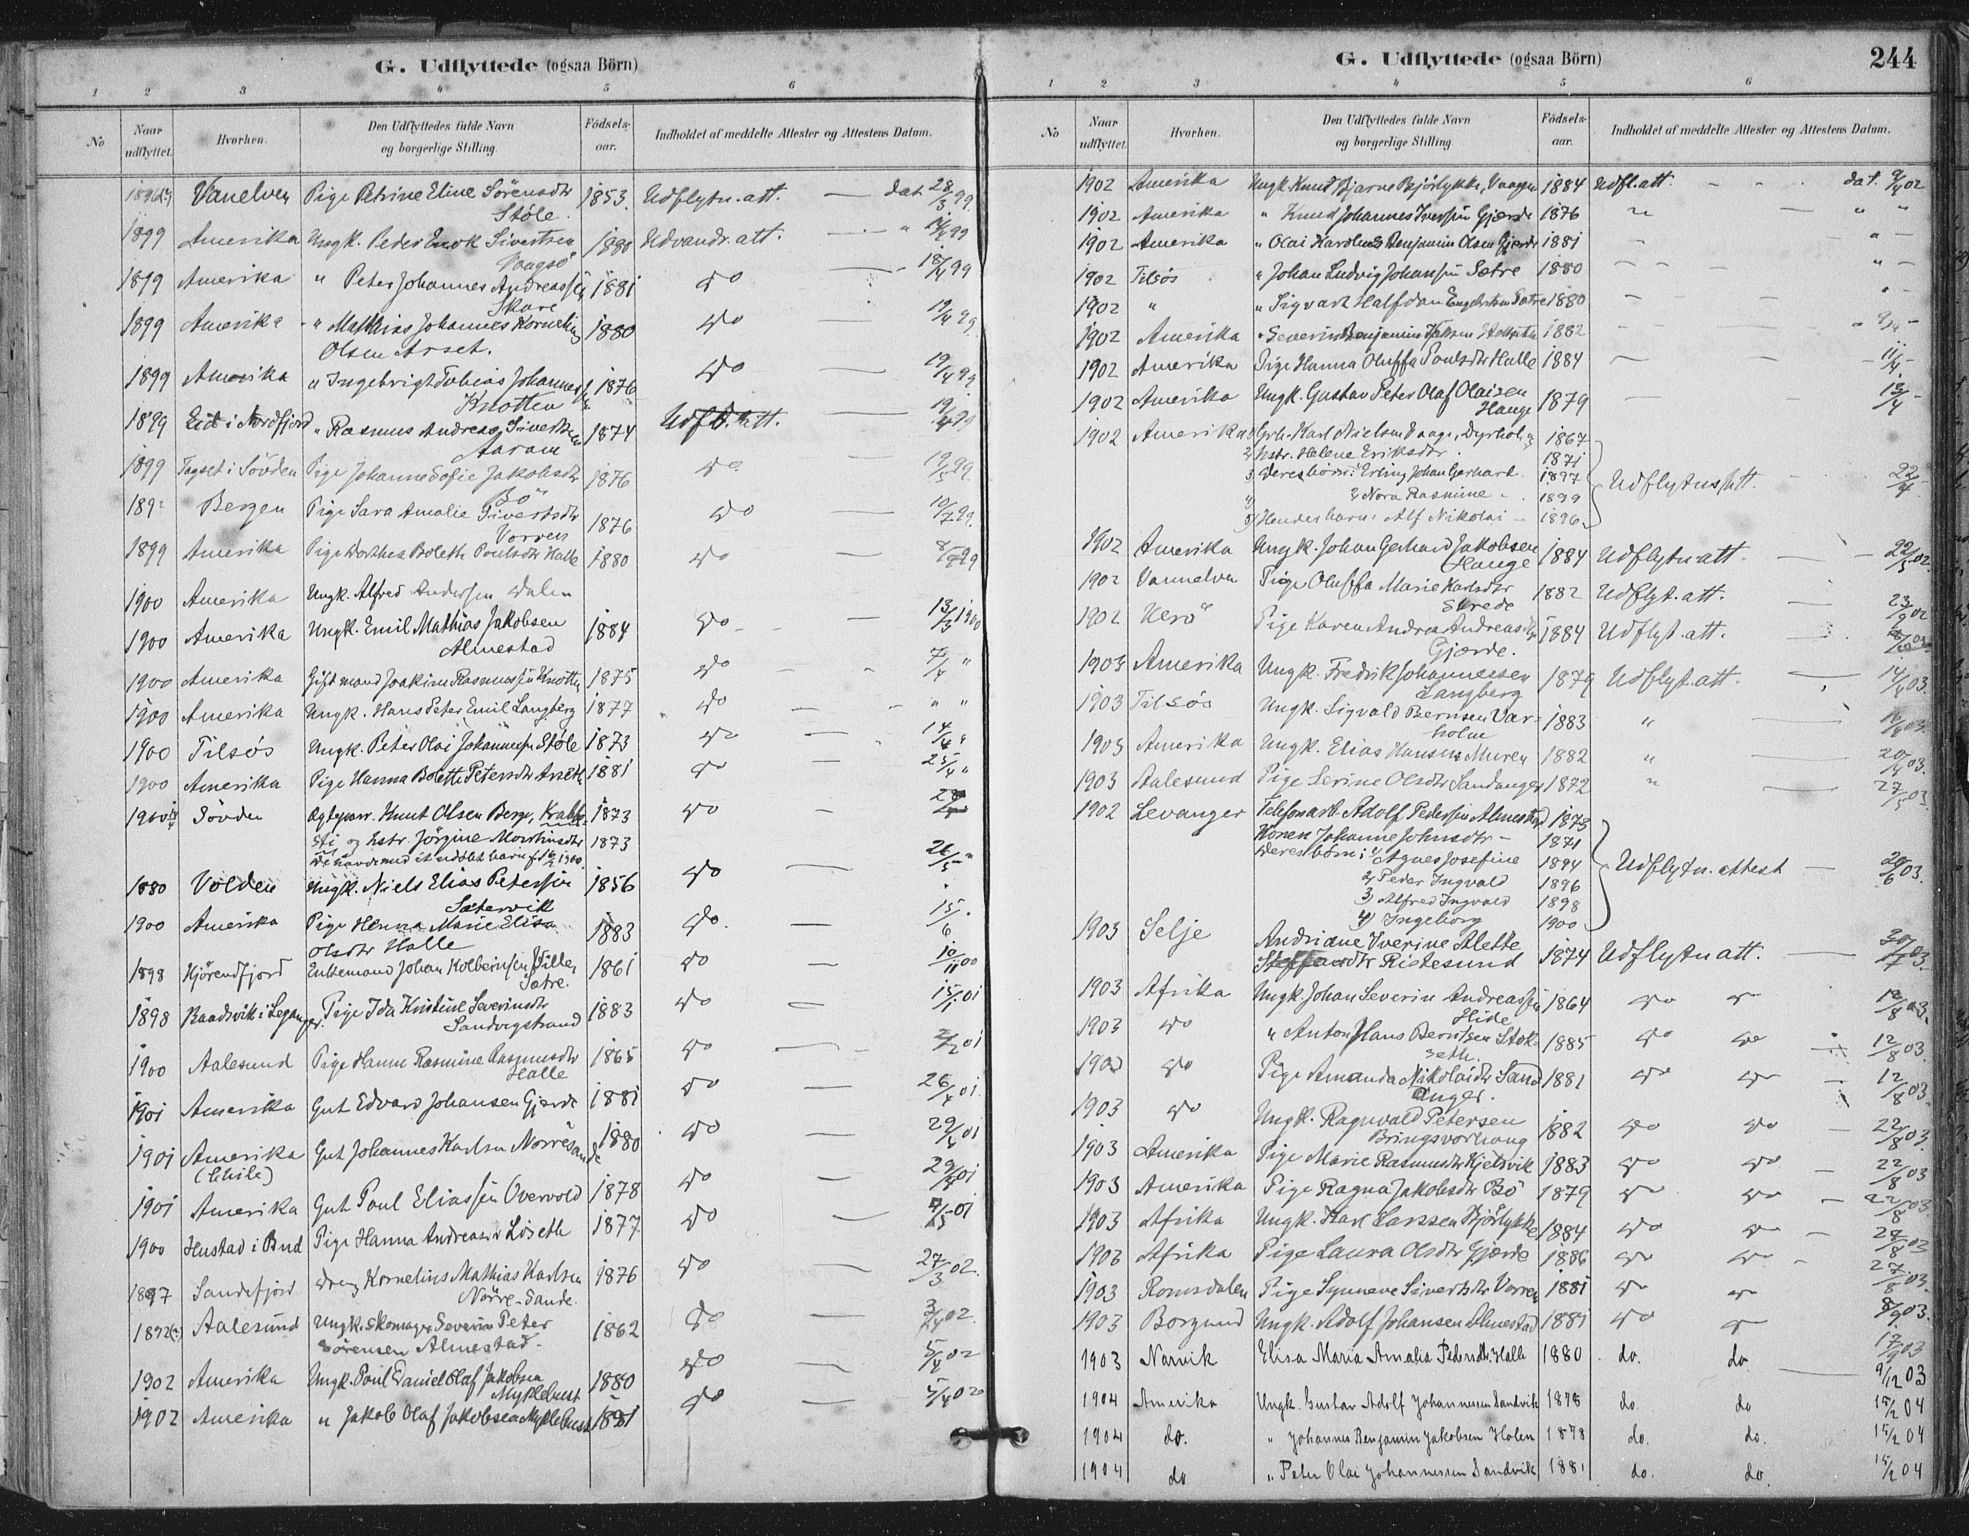 G. Udflyttede (ogsaa Börn)
1 2 3 4 5 6
No
Naar udflyttet.
Hvorhen.
Den Udflyttedes fulde Navn og borgerlige Stilling.
Födsels-aar.
Indholdet af meddelte Attester og Attestens Datum.
Vanelven Pige Petrine Eline Sörensdtr 1853. Udflytn. att. — dat. 28/3 99.
Støle.
1899 Amerika Ungk. Peder Enok Sivertsen 1880 Udvandr. att.
Vaagsö
1899 Amerika " Peter Johannes Andreassen 1881 Do — 18/4 99
Skare
1899 Amerika " Mathias Johannes Kornelius 1880 Do 19/4 99
Olsen Arset.
1899 Amerika " Ingebrigt Tobias Johannes 1876 Do — 19/4 99
Knotten
1899 Eid i Nordfjord " Rasmus Andreas Sivertsen 1874 Udfl. att. — 19/4 99
Aaram
1899 i Sövden Pige Johanne Sofie Jakobsdtr 1876 Do — 99.
Bö
Bergen Pige Sara Amalie Sivertsdtr 1876 Do — 10/7 99.
Vorren
1899 Amerika Pige Dorthea Bolette Poulsdtr Halle 1880 Do — 99
1900 Amerika Ungk. Alfred Andersen Dalen
1900 Amerika Ungk. Emil Mathias Jakobsen 1884 Do 13/3 1900
Almestad
1900 Amerika Gift mand Joakim Rasmussen Knotten 1875 Do 7/4 "
1900 Amerika Ungk. Hans Peter Emil Langberg 1877 Do " "
1900 Tilsös Ungk. Peter Olai Johannessen Støle 1873 Do 14/4 "
1900 Amerika Pige Hanna Bolette Petersdtr Arseth 1881 Do — 25/4 "
1900 Sövden Ægtepar. Knut Olsen Berg, Krabbe- 1873 Do —
sti og hstr. Jörgine Martinusdtr 1873
1880 Volden Ungk. Niels Elias Petersen 1856 Do — 26/5 "
Sætervik
1900 Amerika Pige Hanna Marie Elisa 1883 Do. — 15/6
Olsdtr Halle
1898 Hjörendfjord Enkemand Johan Kolbeinsen 1861 Do — 10/11 00
Sætre.
1898 Raadvik i Leganger. Pige Ida Kristine Severinsdtr 1883 Do — 15/1 01
Sandvigstrand
1900 Aalesund Pige Hanna Rasmine Rasmusdtr 1865 Do — 01
Halle
1901 Amerika Gut Edvard Johansen Gjerde 1881 Do — 26/4 01
1901 Amerika Gut Johannes Karlsen Norresande 1880 Do — 29/4 01
(Chile)
1901 Amerika Gut Poul Eliassen Overvold 1878 Do — 29/4 01
1900 Hustad i Bud Pige Hanna Andreasdtr Löseth 1877 Do — 01
1897 Sandefjord Dreng Kornelius Mathias Karlsen 1876 Do — 27/3 02.
Nörre-Sande.
1892 Aalesund Ungk. Skomager Severin Peter 1862 Do — 3/4 02.
Sörensen Almestad.
1902 Amerika Ungk. Poul Daniel Olaf Jakobsen 1880 Do — 5/4 02
Myklebust
1902 Amerika " Jakob Olaf Jakobsen Myklebust 1881 Do — 5/4 02
G. Udflyttede (ogsaa Börn) 244
1 2 3 4 5 6
No
Naar udflyttet.
Hvorhen.
Den Udflyttedes fulde Navn og borgerlige Stilling.
Födsels-aar.
Indholdet af meddelte Attester og Attestens Datum.
1902 Amerika Ungk. Knud Bjarne Bjørlykke, Vaagen 1884 Udfl. att. dat. 9/4 02
1902 Amerika " Knud Johannes Iversen Gjerde 1876 " — " "
1902 Amerika " Olai Karolius Benjamin Olsen Gjerde 1881 — " —
1902 Tilsös " Johan Ludvig Johansen Sætre 1880 — — — " —
1902 " " Sigvart Halfdan Engebretsen Sætre 1880 — — — " —
1902 Amerika " Severin Benjamin 1882 — — 9/4 —
1902 Amerika Pige Hanna Oluffa Poulsdtr Halle 1884 — — 11/4 —
1902 Amerika Ungk. Gustav Peter Olaf Olaisen 1879 — — —
Hauge
1902 Amerika 1) Grb. Karl Nielsen Vaage, Dyrhol 1867
2) hstr. Helene Eriksdtr. 1871
3 Deres börn: 1 Erling Johan Gerhard. 1897 Udflytnsatt. 22/4 —
4 2 Nora Rasmine " 1899
5) Hendes barn: Alf Nikolai — 1896
1902 Amerika Ungk. Johan Gerhard Jakobsen 1884 Udflytn. att. — 22/5 02.
Hauge
1902 Vannelven Pige Oluffa Marie Karlsdtr 1882 Udflyt. att. — 23/9 02
Strede
1902 Herö Pige Karen Andrea Andreasdtr 1884 Udflyt. att.
Gjerde.
1903 Amerika Ungk. Fredrik Johannessen 1879 Udflyt. att. — 14/4 03.
Langberg
1903 Tilsös Ungk. Sigvald Berntsen Var- 1883 " — 16/4 03.
holm
1903 Amerika Ungk. Elias Hansen Muren 1882 " — 20/4 03.
1903 Aalesund Pige Serine Olsdtr Sandanger 1872 " — 27/5 03.
1902 Levanger Telefonarb. Adolf Pedersen Almestad 1873
Konen Johanne Johnsdtr — 1871
Deres börn: 1) Agnes Josefine 1894 Udflytn. attest — 20/6 03.
2, Peder Ingvald 1896
3) Alfred Ingvard 1898
4) Ingeborg 1900
1903 Selje Andriane Iverine Alette
Steffensdtr Ristesund 1874 Udflytn att. — 30/7 03.
1903 Afrika Ungk. Johan Severin Andreassen 1864 Do Do 12/8 03.
Hide
1903 Do " Anton Hans Berntsen Stok- 1885 Do Do 12/8 03.
seth.
1903 Do Pige Amanda Nikolaidtr Sand 1881 Do Do — 12/8 03.
anger.
1903 Do Ungk. Ragnvald Petersen 1882 Do Do — 22/8 03.
Bringsvorhaug
1903 Amerika Pige Marie Rasmusdtr Kjelsvik 1883 Do Do — 22/8 03
1903 Amerika Pige Ragna Jakobsdtr Bö 1879 Do Do — 22/8 03.
1903 Afrika Ungk. Karl Larssen Bjørlykke 1884 Do Do — 27/8 03
1903 Afrika Pige Laura Olsdtr Gjerde 1886 Do Do — 27/8 03.
1903 Romsdalen Pige Synneve Sivertsdtr Vorren 1881 Do Do
1903 Borgund Ungk. Adolf Johansen Almestad 1881 Do Do 8/9 03.
1903 Narvik Elisa Maria Amalia Pedersdtr. Halle 1880 do. do. 17/9 03
— 9/12 03
1904 Amerika Ungk. Gustav Adolf Johannessen Sandvik 1878 do do 15/2 04
1904 do. " Johannes Benjamin Jakobsen Holen 1878 do. do. 15/2 04
1904 do " Peter Olai Johannessen Sandvik 1881 do. do. 15/2 04